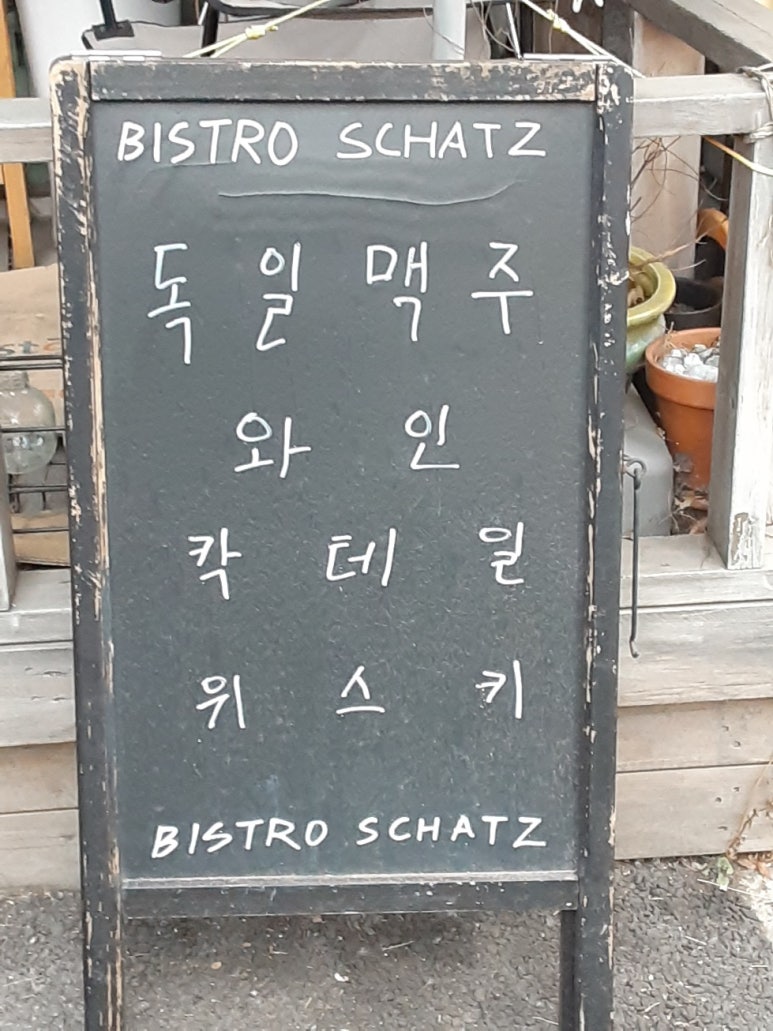 BISTRO SCHATZ
독일맥주
와인
칵테일
위스키
BISTRO SCHATZ